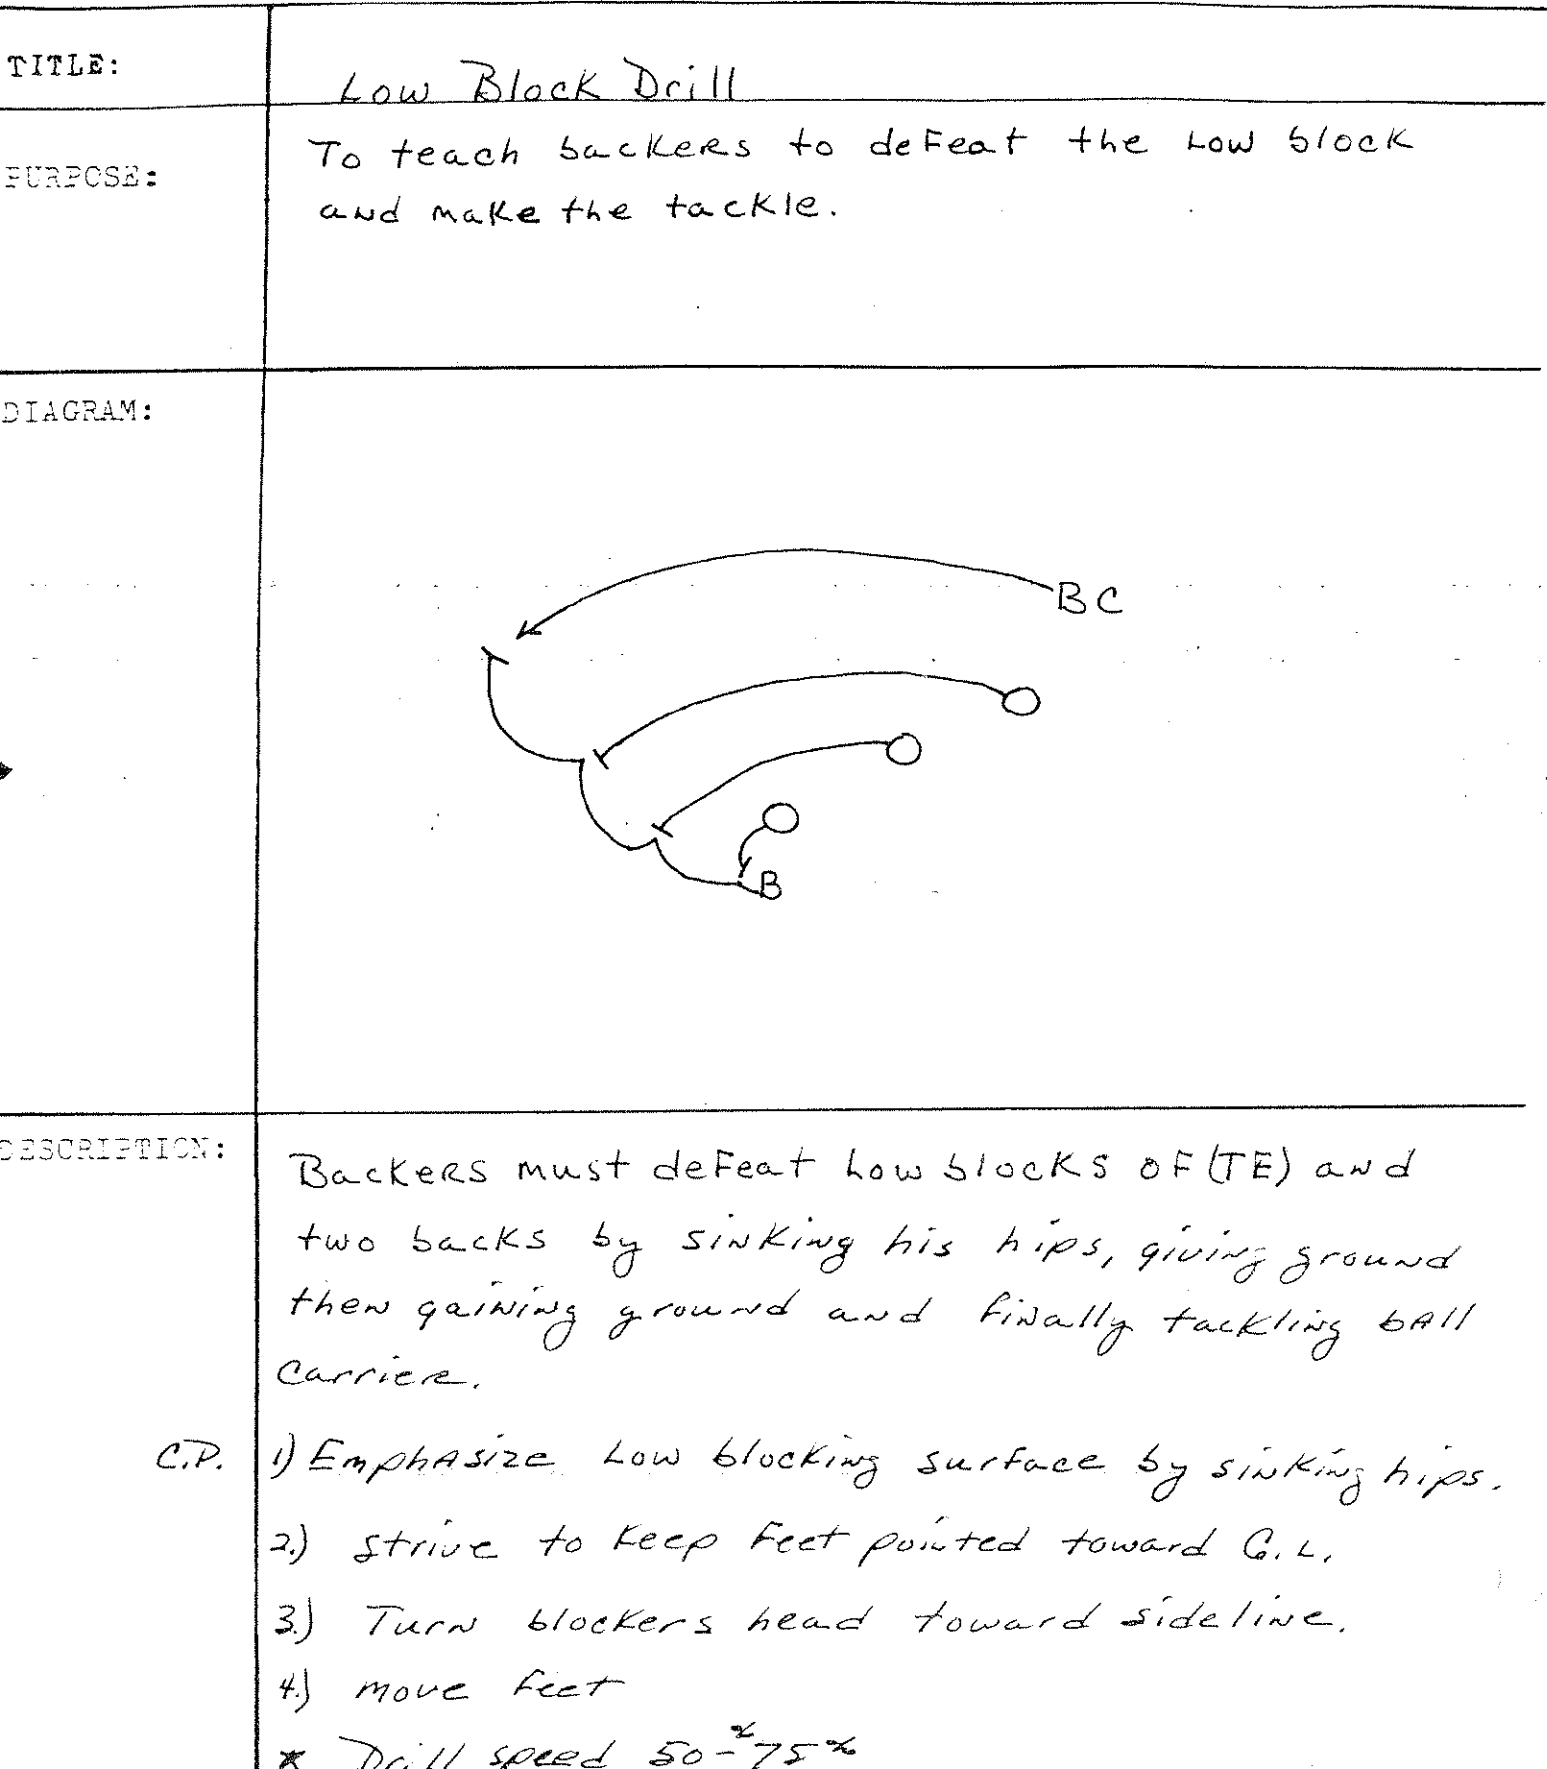 TITLE: Low Block Drill
PURPOSE: To teach backers to defeat the Low block
and make the tackle.
DIAGRAM:
BC
B
DESCRIPTION: Backers must defeat Low blocks of (TE) and
two backs by sinking his hips, giving ground
then gaining ground and finally tackling ball
carrier.
C.P. 1) Emphasize Low blocking surface by sinking hips.
2.) strive to keep feet pointed toward G.L.
3.) Turn blockers head toward sideline.
4.) move feet
* Drill speed 50%-75%